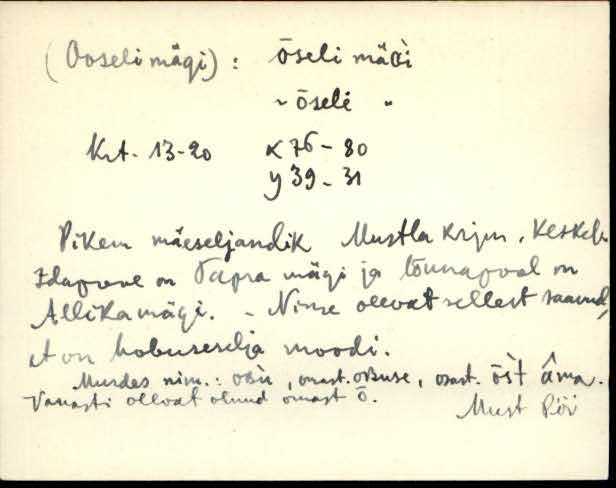 (Ooseli mägi) : ōseli mäGi
" ōseli "
Krt. 13-20 x 76 - 80
y 39 - 31
Pikem mäeseljandik Mustla
Idapool on Tapra mägi ja lõunapool on
Allikamägi. - Nime olevat sellest saanud,
et on hobuseselja moodi.
Murdes nim.: oBù, omast. oBuse, osast.
Vanasti olevat olnud omast ō.
Must Pöi